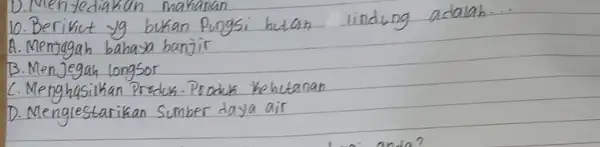 D. Menyediakan makanan
10. Berikut yg bukan Pungsi hutan lindung adalah...
A. Menjagah bahaya banjir
B. Menjegah longsor
C. Menghasilkan Produk-Produk kehutanan
D. Menglestarikan Sumber daya air
anda?